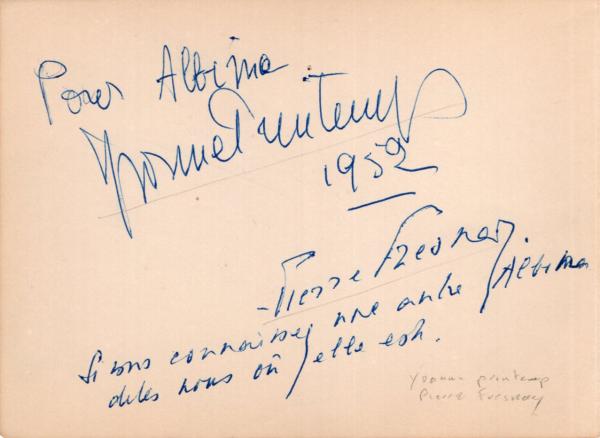 Pour Albina
Yvonne Printemps
1952
- Pierre Fresnay.
Si vous connaissez une autre Albina
dites nous où elle est.
Yvonne printemps
Pierre Fresnay